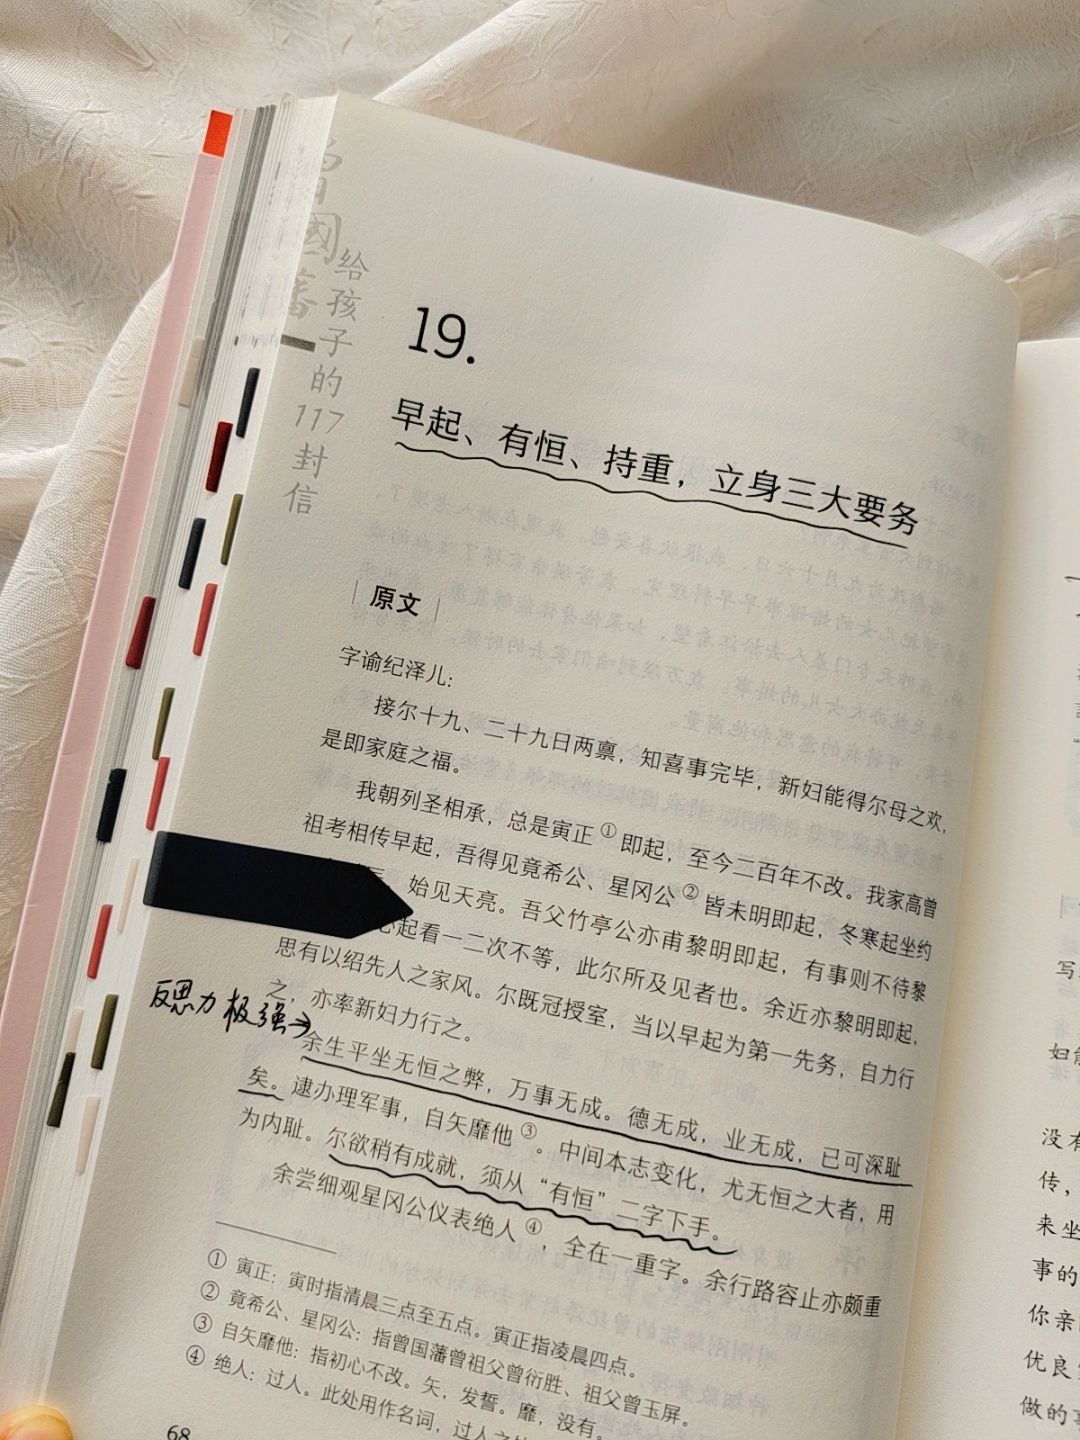 曾國藩
给孩子的117封信
19.
早起、有恒、持重，立身三大要务
原文
字谕纪泽儿：
接尔十九、二十九日两禀，知喜事完毕，新妇能得尔母之欢，
是即家庭之福。
我朝列圣相承，总是寅正①即起，至今二百年不改。我家高曾
祖考相传早起，吾得见竟希公、星冈公②皆未明即起，冬寒起坐约
始见天亮。吾父竹亭公亦甫黎明即起，有事则不待黎
起看一二次不等，此尔所及见者也。余近亦黎明即起，
思有以绍先人之家风。尔既冠授室，当以早起为第一先务，自力行
之，亦率新妇力行之。
反思力极强→
余生平坐无恒之弊，万事无成。德无成，业无成，已可深耻
矣。逮办理军事，自矢靡他③。中间本志变化，尤无恒之大者，用
为内耻。尔欲稍有成就，须从“有恒”二字下手。
余尝细观星冈公仪表绝人④，全在一重字。余行路容止亦颇重
① 寅正：寅时指清晨三点至五点。寅正指凌晨四点。
② 竟希公、星冈公：指曾国藩曾祖父曾衍胜、祖父曾玉屏。
③ 自矢靡他：指初心不改。矢，发誓。靡，没有。
④ 绝人：过人。此处用作名词，过人之
68
写
没有
传，
来坐
事的
你亲
优良
做的